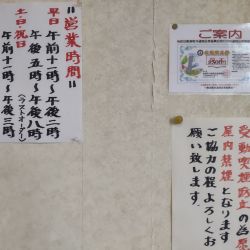 "営業時間"
平日
午前十一時〜午後二時
午後五時〜午後八時
(ラストオーダー)
土・日・祝日
午前十一時〜午後三時
ご案内
受動喫煙防止の為
屋内禁煙となります
ご協力の程よろしくお
願い致します。